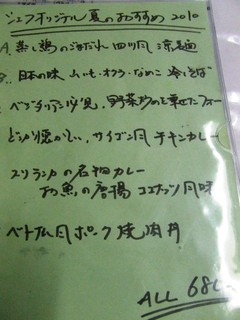 シェフオリジナル 夏のおすすめ 2010
A. 蒸し鶏のごまだれ 四川風 涼麺
B. 日本の味 山いも・オクラ・なめこ 冷しそば
ベジタリアン必見、野菜炒めを乗せたフォー
どこか懐かしい、サイゴン風 チキンカレー
スリランカの名物カレー
お魚の唐揚 ココナッツ風味
ベトナム風ポーク焼肉丼
ALL 68